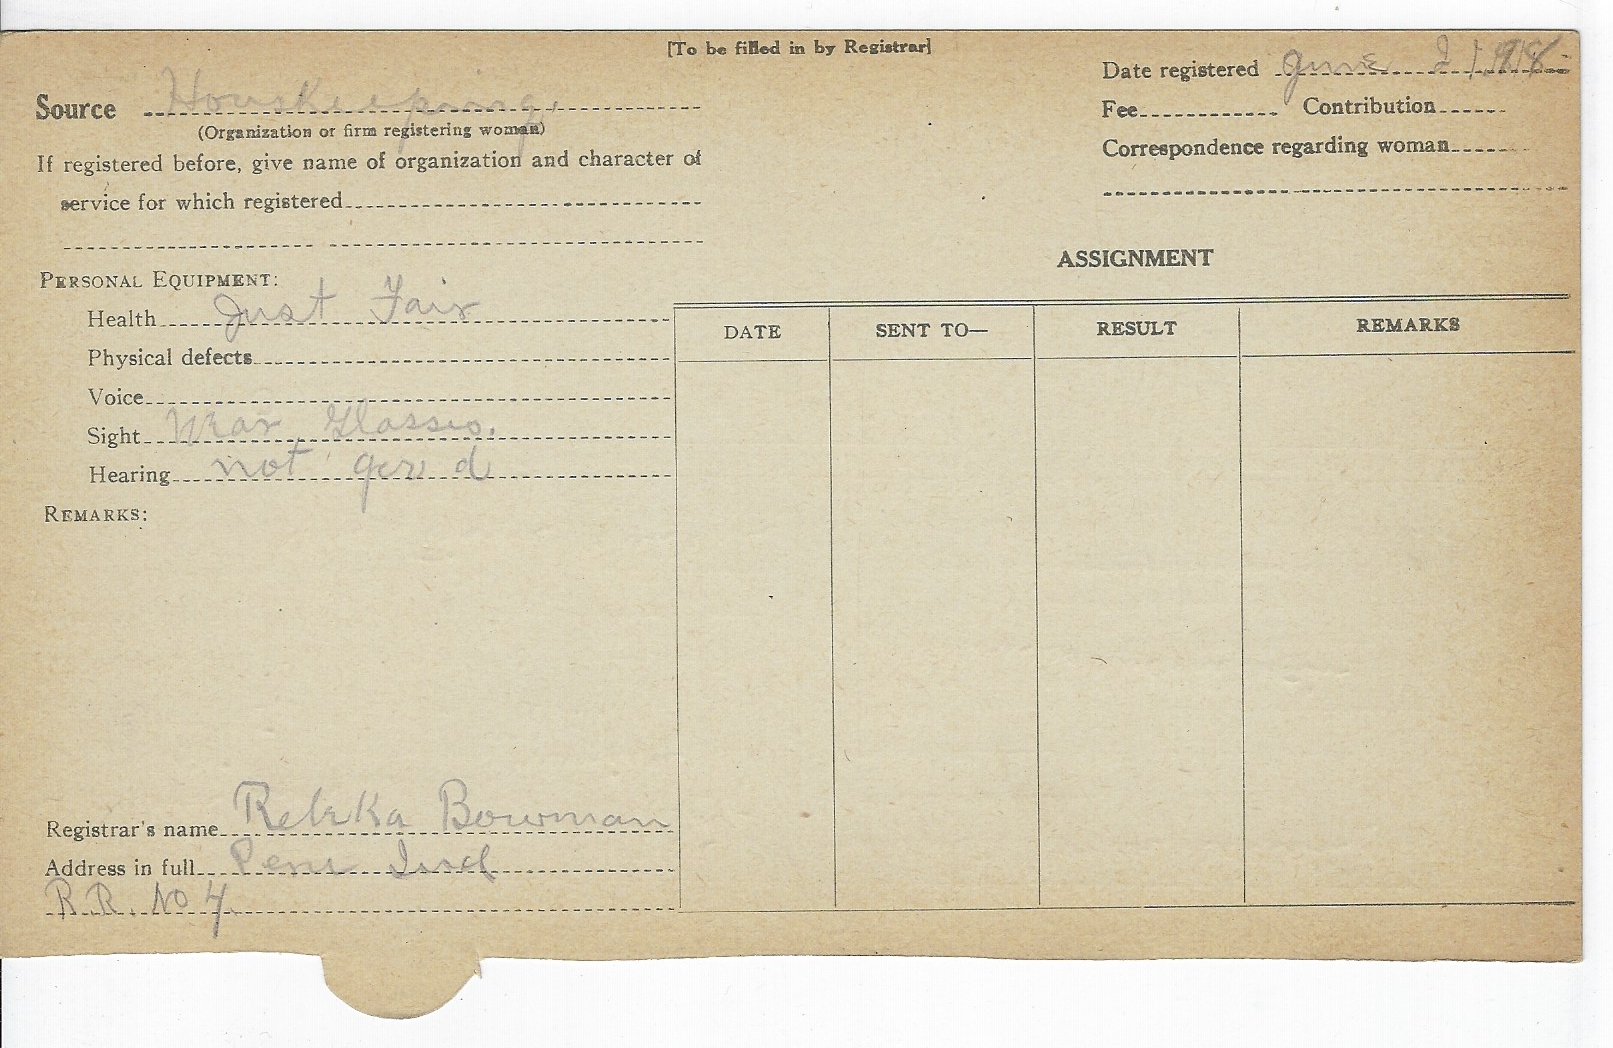 [To be filled in by Registrar]
Source Houskeeping.
(Organization or firm registering woman)
If registered before, give name of organization and character of
service for which registered
Date registered June 21 1918
Fee Contribution
Correspondence regarding woman
PERSONAL EQUIPMENT:
Health Just Fair
Physical defects
Voice
Sight Wear Glasses.
Hearing not good
REMARKS:
Registrar's name Rebeka Bowman
Address in full Peru Ind
R.R. No 4.
ASSIGNMENT
DATE SENT TO— RESULT REMARKS